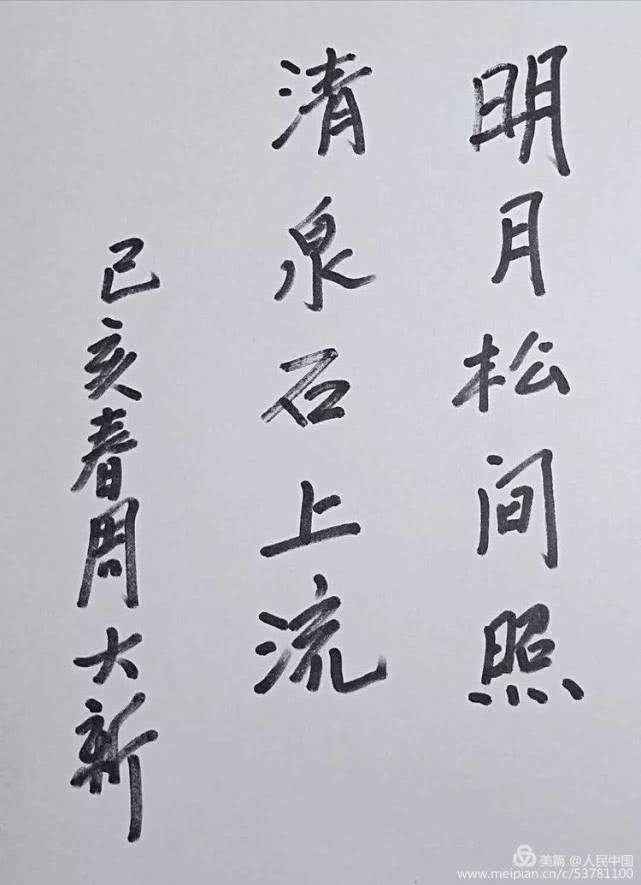 明月松间照
清泉石上流
己亥春周大新
美篇 @人民中国
www.meipian.cn/c/53781100